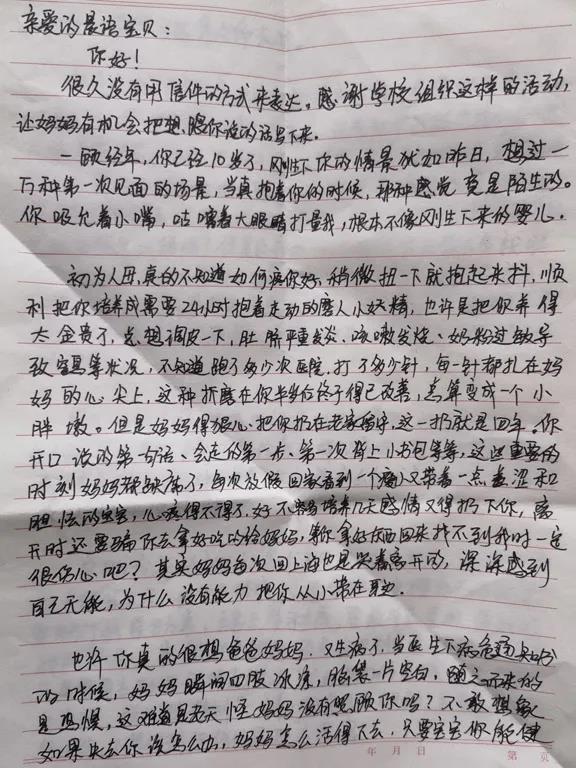 亲爱的晨语宝贝：
你好！
很久没有用信件的方式来表达。感谢学校组织这样的活动，
让妈妈有机会把想跟你说的话写下来。
一晃经年，你已经10岁了，刚生下你的情景犹如昨日，想过一
万种第一次见面的场景，当真抱着你的时候，那种感觉竟是陌生的。
你吸允着小嘴，咕噜着大眼睛打量我，根本不像刚生下来的婴儿。
初为人母，真的不知道如何疼你好，稍微扭一下就抱起来抖，顺
利把你培养成需要24小时抱着走动的磨人小妖精，也许是把你养得
太金贵了，总想调皮一下，肚脐严重发炎、咳嗽发烧、奶粉过敏导
致等状况，不知道跑了多少次医院，打了多少针，每一针都扎在妈
妈的心尖上，这种折磨在你半岁后终于得已改善，总算变成一个小
胖墩。但是妈妈得狠心把你扔在老家留守，这一扔就是四年。你
开口说的第一句话、会走的第一步、第一次背上小书包等等，这些重要的
时刻妈妈都缺席了，每次放假回家看到一个瘦小又带着一点羞涩和
胆怯的宝宝，心疼得不得了，好不容易培养几天感情又得扔下你，离
开时还要骗你去拿好吃的给妈妈，等你拿好东西回来找不到我时一定
很伤心吧？其实妈妈每次回上海也是哭着离开的，深深感到
自己无能，为什么没有能力把你从小带在身边。
也许你真的很想爸爸妈妈，又生病了，当医生下病危通知份
的时候，妈妈瞬间四肢冰凉，脑袋一片空白，随之而来的
是恐惧，这难道是老天怪妈妈没有照顾你吗？不敢想象
如果失去你该怎么办，妈妈怎么活得下去，只要宝宝你能健
年 月 日 第 页